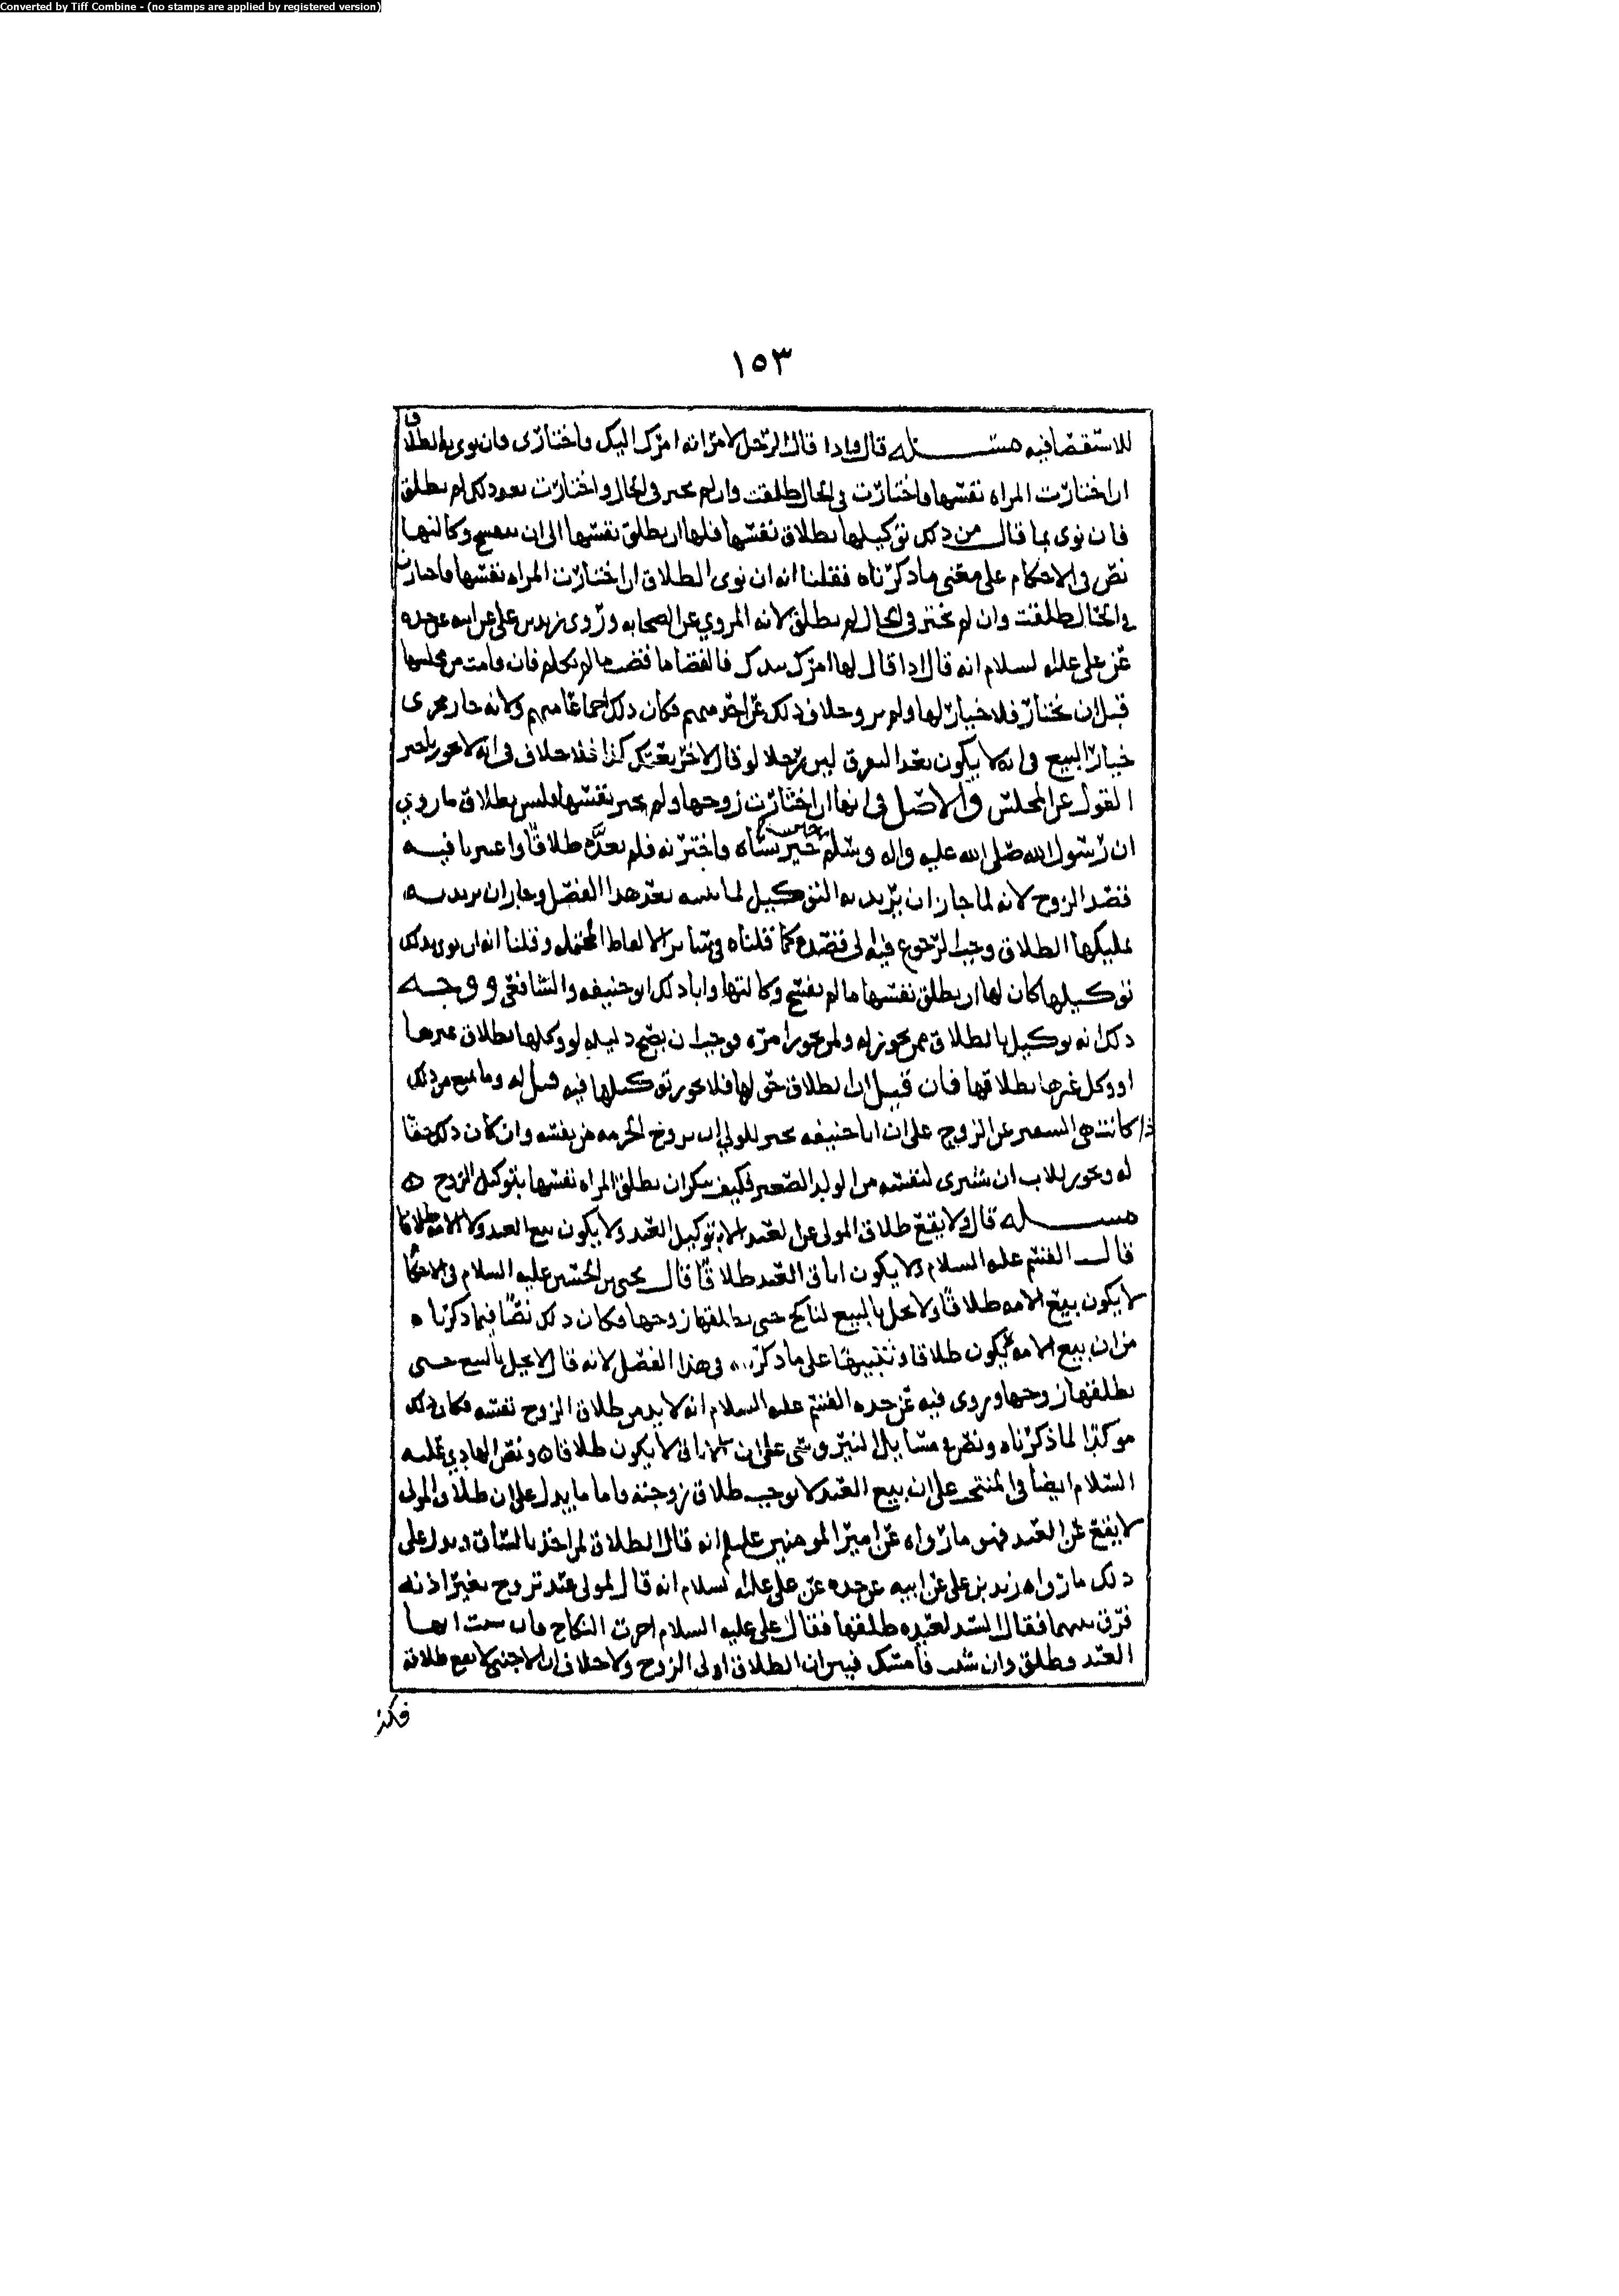 Converted by Tiff Combine - (no stamps are applied by registered version)
١٥٣
للاستقصا فيه مسئله قال واذا قال الرجل لامراته امرك اليك واختاري فان نوى به الطلاق
ان اختارت المراه نفسها فاختارت في الحال طلقت وان لم تختر في الحال واختارت بعد ذلك لم تطلق
فان نوى بما قال من ذلك توكيلها بطلاق نفسها فلها ان تطلق نفسها الى ان يفسخ وكالتها
نص في الاحكام على معنى ما ذكرناه فقلنا انه ان نوى الطلاق ان اختارت المراه نفسها فاختارت
في الحال طلقت وان لم تختر في الحال لم تطلق لانه المروي عن الصحابه وروى زيد بن علي عن ابيه عن جده
عن علي عليه السلام انه قال اذا قال لها امرك بيدك فالقضا ما قضت ما لم تكلم فان قامت من مجلسها
قبل ان تختار فلا خيار لها ولم يرو خلاف ذلك عن احد منهم فكان ذلك اجماعا منهم ولانه جار مجرى
خيار البيع في انه لا يكون بعد التفرق لان رجلا لو قال لاخر بعتك كذا فلا خلاف في انه لا يجوز تاخير
القول عن المجلس والاصل في انها ان اختارت زوجها ولم تختر نفسها فليس بطلاق ما روي
ان رسول الله صلى الله عليه واله وسلم خير نساه فاختر نه فلم يعده طلاقا واعتبرنا فيه
قصد الزوج لانه لما جاز ان يريد به التوكيل لما نبينه بعد هذا الفصل وجاز ان يريد به
تمليكها الطلاق وجب الرجوع فيه الى قصده كما قلناه في ساير الالفاظ المحتمله وقلنا انه ان نوى بذلك
توكيلها كان لها ان تطلق نفسها ما لم يفسخ وكالتها وابا ذلك ابو حنيفه والشافعي ووجه
ذلك انه توكيل بالطلاق ممن يجوز له ولمن يجوز امره فوجب ان يصح دليله لو وكلها بطلاق غيرها
او وكل غيرها بطلاقها فان قيل ان الطلاق حق لها فلا يجوز توكيلها فيه قيل له وما يمنع من ذلك
اذا كانت هي السفير عن الزوج على ان ابا حنيفه يجيز للولي ان يزوج الحرمه من نفسه وان كان ذلك حقا
له ويجوز للاب ان يشتري لنفسه من الولد الصغير فكيف ينكر ان تطلق المراه نفسها بتوكيل الزوج ه
مسئله قال ولا يقع طلاق المولى عن العبد الا بتوكيل العبد ولا يكون بيع العبد ولا الامه طلاقا
قال القسم عليه السلام ولا يكون اباق العبد طلاقا قال يحيى بن الحسين عليه السلام في الاحكام
لا يكون بيع الامه طلاقا ولا تحل بالبيع لناكح حتى يطلقها زوجها وكان ذلك نصا فيما ذكرناه
من ان بيع الامه لا يكون طلاقا وتنبيها على ما ذكرناه في هذا الفصل لانه قال لا تحل بالبيع حتى
يطلقها زوجها وروى فيه عن جده القسم عليه السلام انه لا بد من طلاق الزوج نفسه فكان ذلك
موكدا لما ذكرناه ونص في مسايل النيروسي على ان الاباق لا يكون طلاقا ه ونص الهادي عليه
السلام ايضا في المنتخب على ان بيع العبد لا يوجب طلاق زوجته واما ما يدل على ان طلاق المولى
لا يقع عن العبد فهو ما رواه عن امير المومنين عليلم انه قال الطلاق لمن اخذ بالساق ويدل على
ذلك ما رواه زيد بن علي عن ابيه عن جده عن علي عليه السلام انه قال لمولى عبد تزوج بغير اذنه
فرق بينهما فقال السيد لعبده طلقها فقال علي عليه السلام اجزت النكاح فان شئت ايها
العبد فطلق وان شئت فامسك فبين ان الطلاق اولى الزوج ولا خلاف ان الاجنبي لا يقع طلاقه